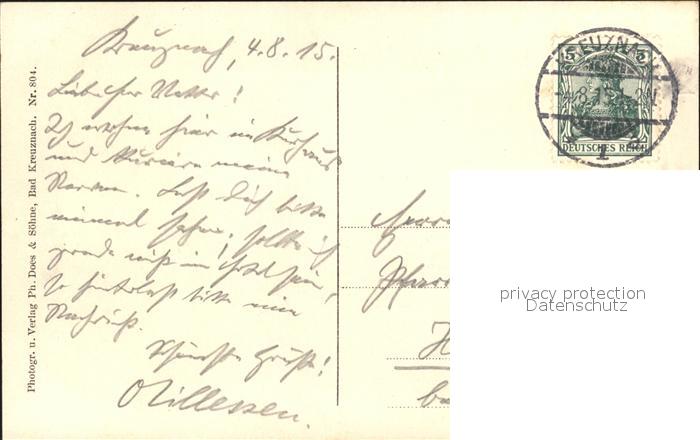 Kreuznach, 4.8.15.
Lieber Vetter!
Ich wohne hier im Kurhaus
und kuriere meine
Nerven. Laß Dich bitte
einmal sehen, sollte ich
grade nicht im Hotel sein,
so hinterlaß bitte eine
Nachricht.
Schönste Grüße!
Photogr. u. Verlag Ph. Does & Söhne, Bad Kreuznach. Nr. 804.
5 5
DEUTSCHES REICH
KREUZNACH
1
Herrn
Pfarr
privacy protection
Datenschutz